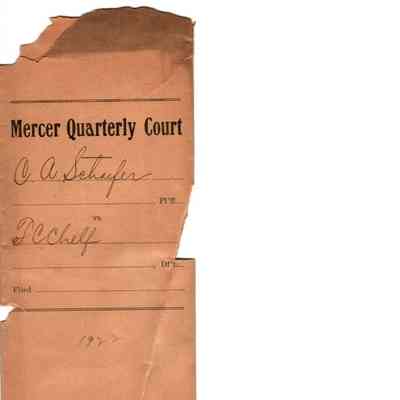 Mercer Quarterly Court
C A Schaefer
Pl'ff.
vs.
T C Chelf
Df't.
Filed
1922